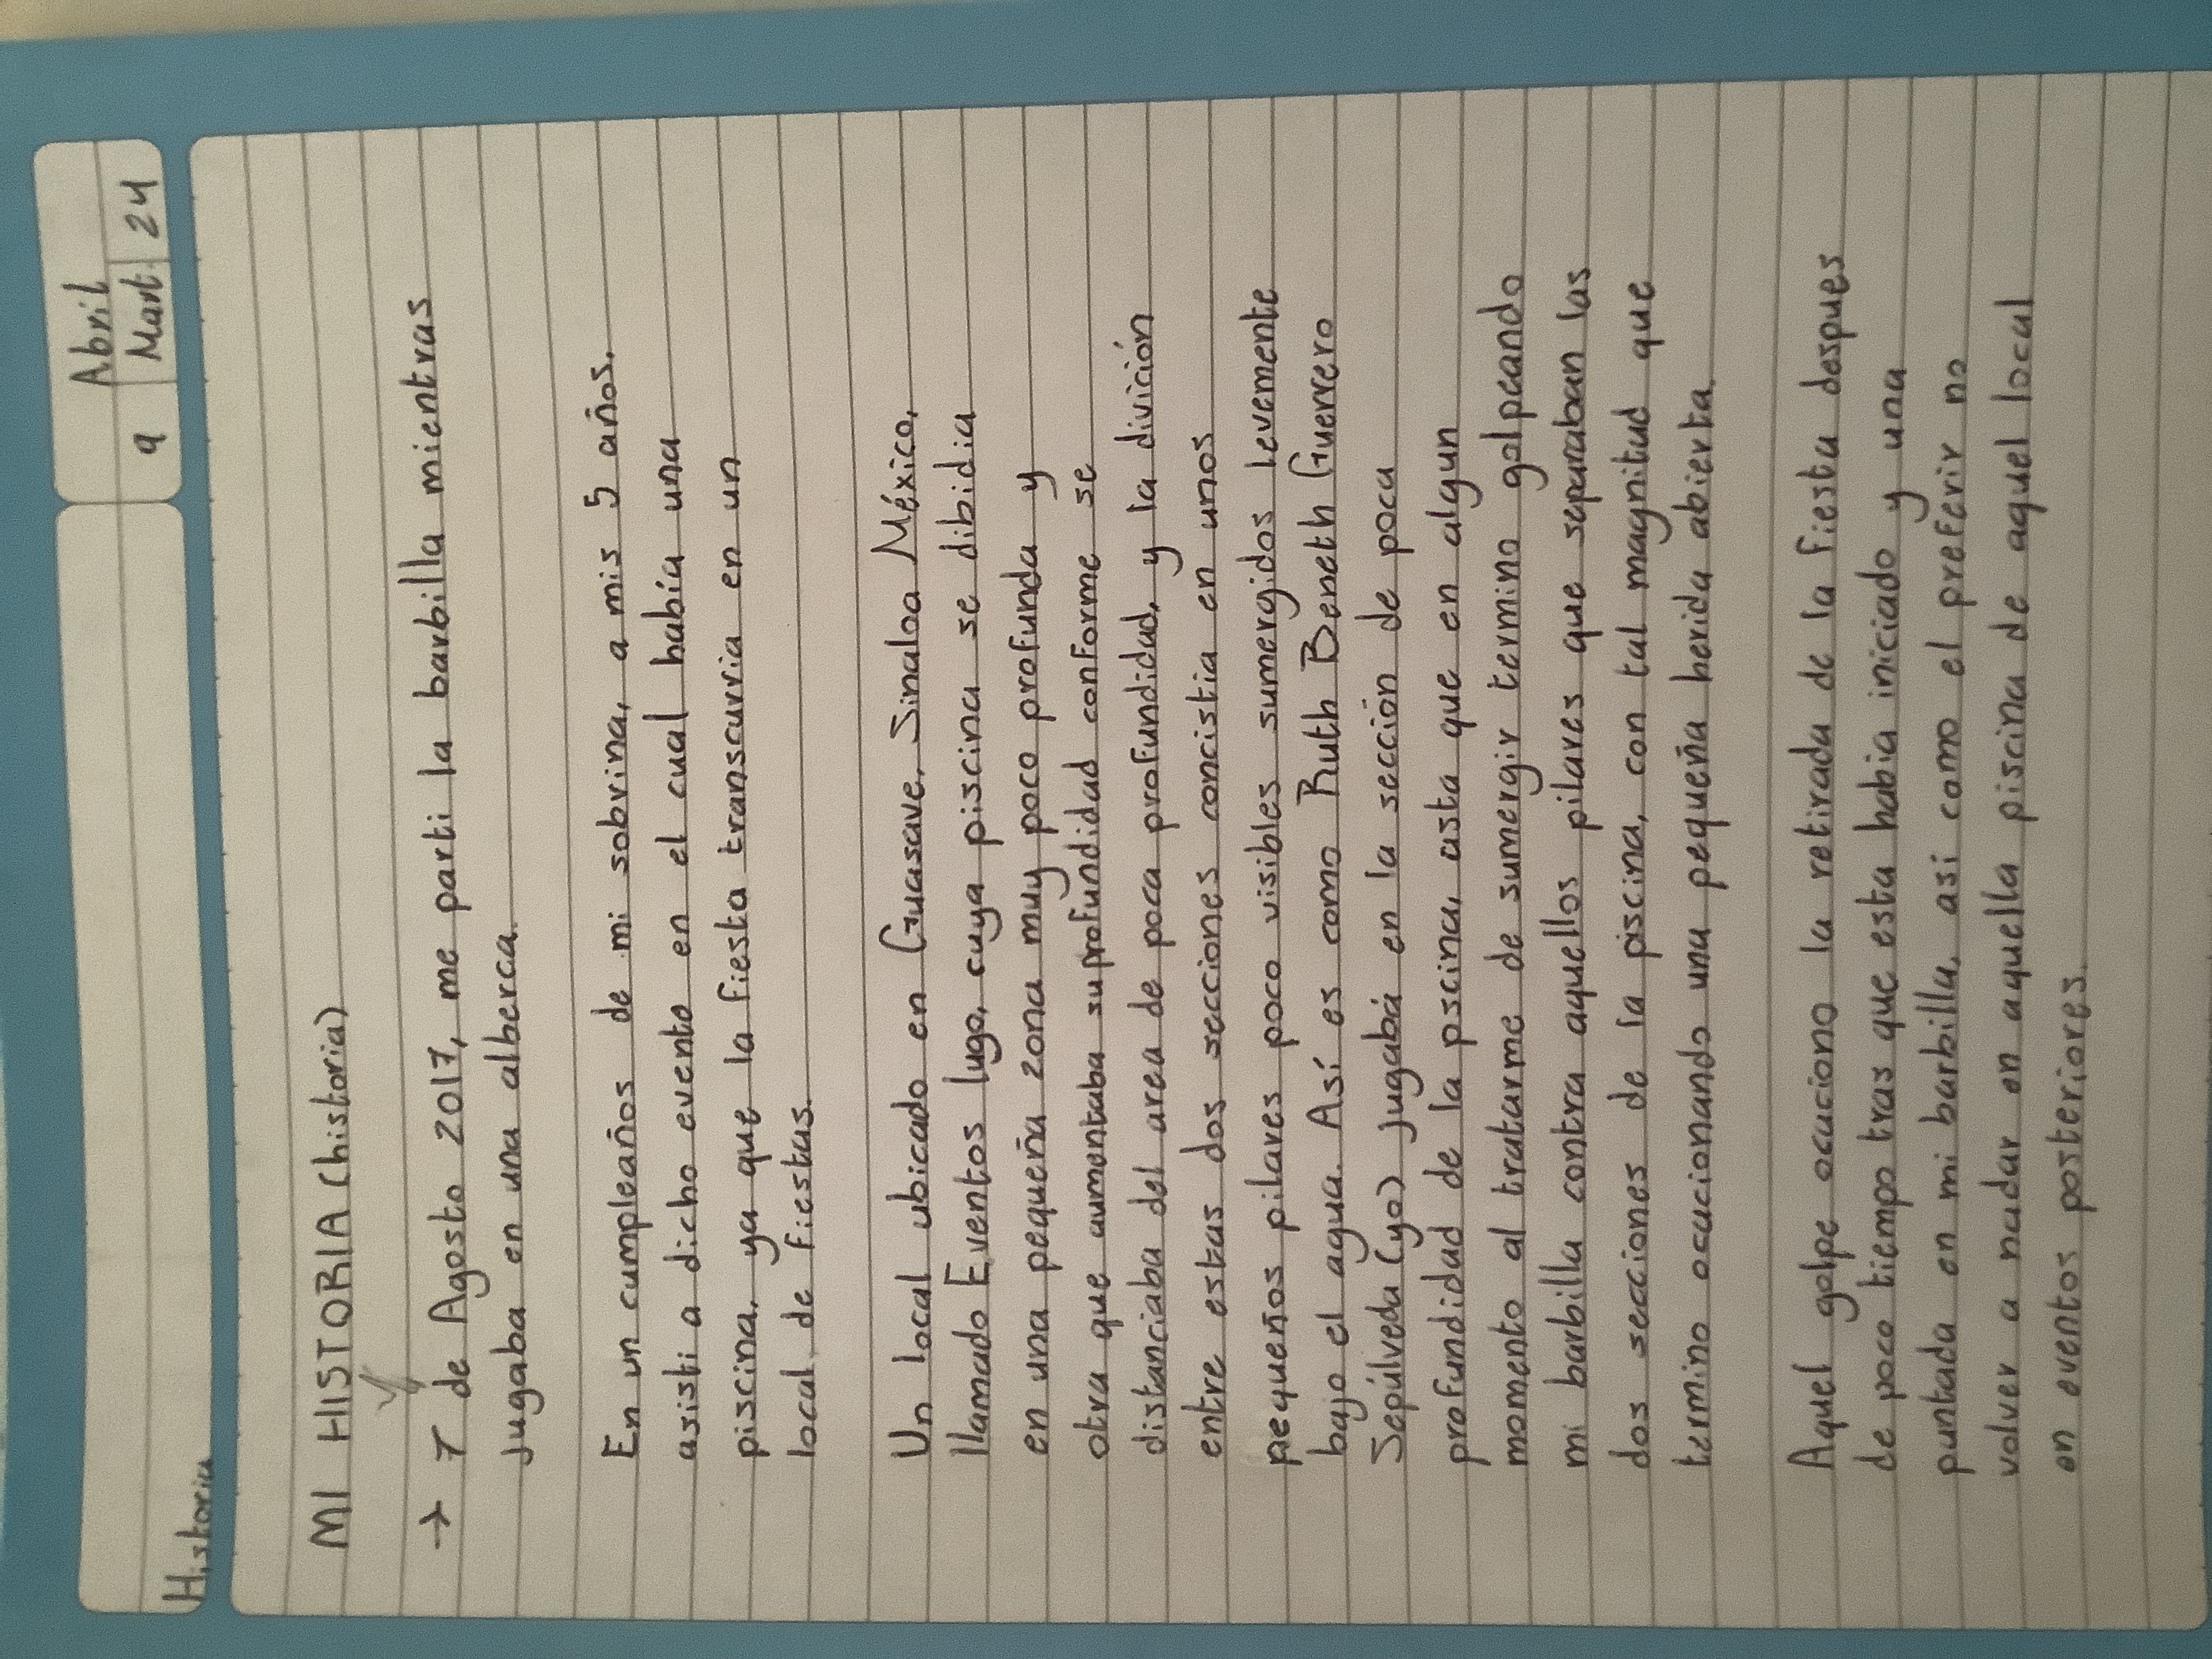 Abril
9 Mart. 24
Historia
MI HISTORIA (historia)
→ 7 de Agosto 2017, me parti la barbilla mientras
jugaba en una alberca.
En un cumpleaños de mi sobrina, a mis 5 años,
asisti a dicho evento en el cual había una
piscina, ya que la fiesta transcurria en un
local de fiestas.
Un local ubicado en Guasave, Sinaloa México,
llamado Eventos lugo, cuya piscina se dibidia
en una pequeña zona muy poco profunda y
otra que aumentaba su profundidad conforme se
distanciaba del area de poca profundidad, y la divición
entre estas dos secciones concistia en unos
pequeños pilares poco visibles sumergidos levemente
bajo el agua. Así es como Ruth Beneth Guerrero
Sepúlveda (yo) jugabá en la sección de poca
profundidad de la pscina, asta que en algun
momento al tratarme de sumergir termino golpeando
mi barbilla contra aquellos pilares que separaban las
dos secciones de la piscina, con tal magnitud que
termino ocacionando una pequeña herida abierta.
Aquel golpe ocaciono la retirada de la fiesta despues
de poco tiempo tras que esta habia iniciado y una
puntada en mi barbilla, asi como el preferir no
volver a nadar en aquella piscina de aquel local
en eventos posteriores.